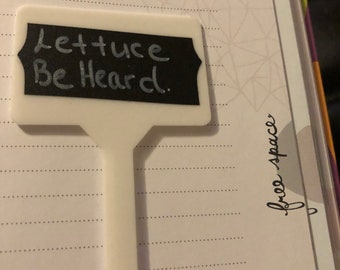 Lettuce
Be Heard.
free space